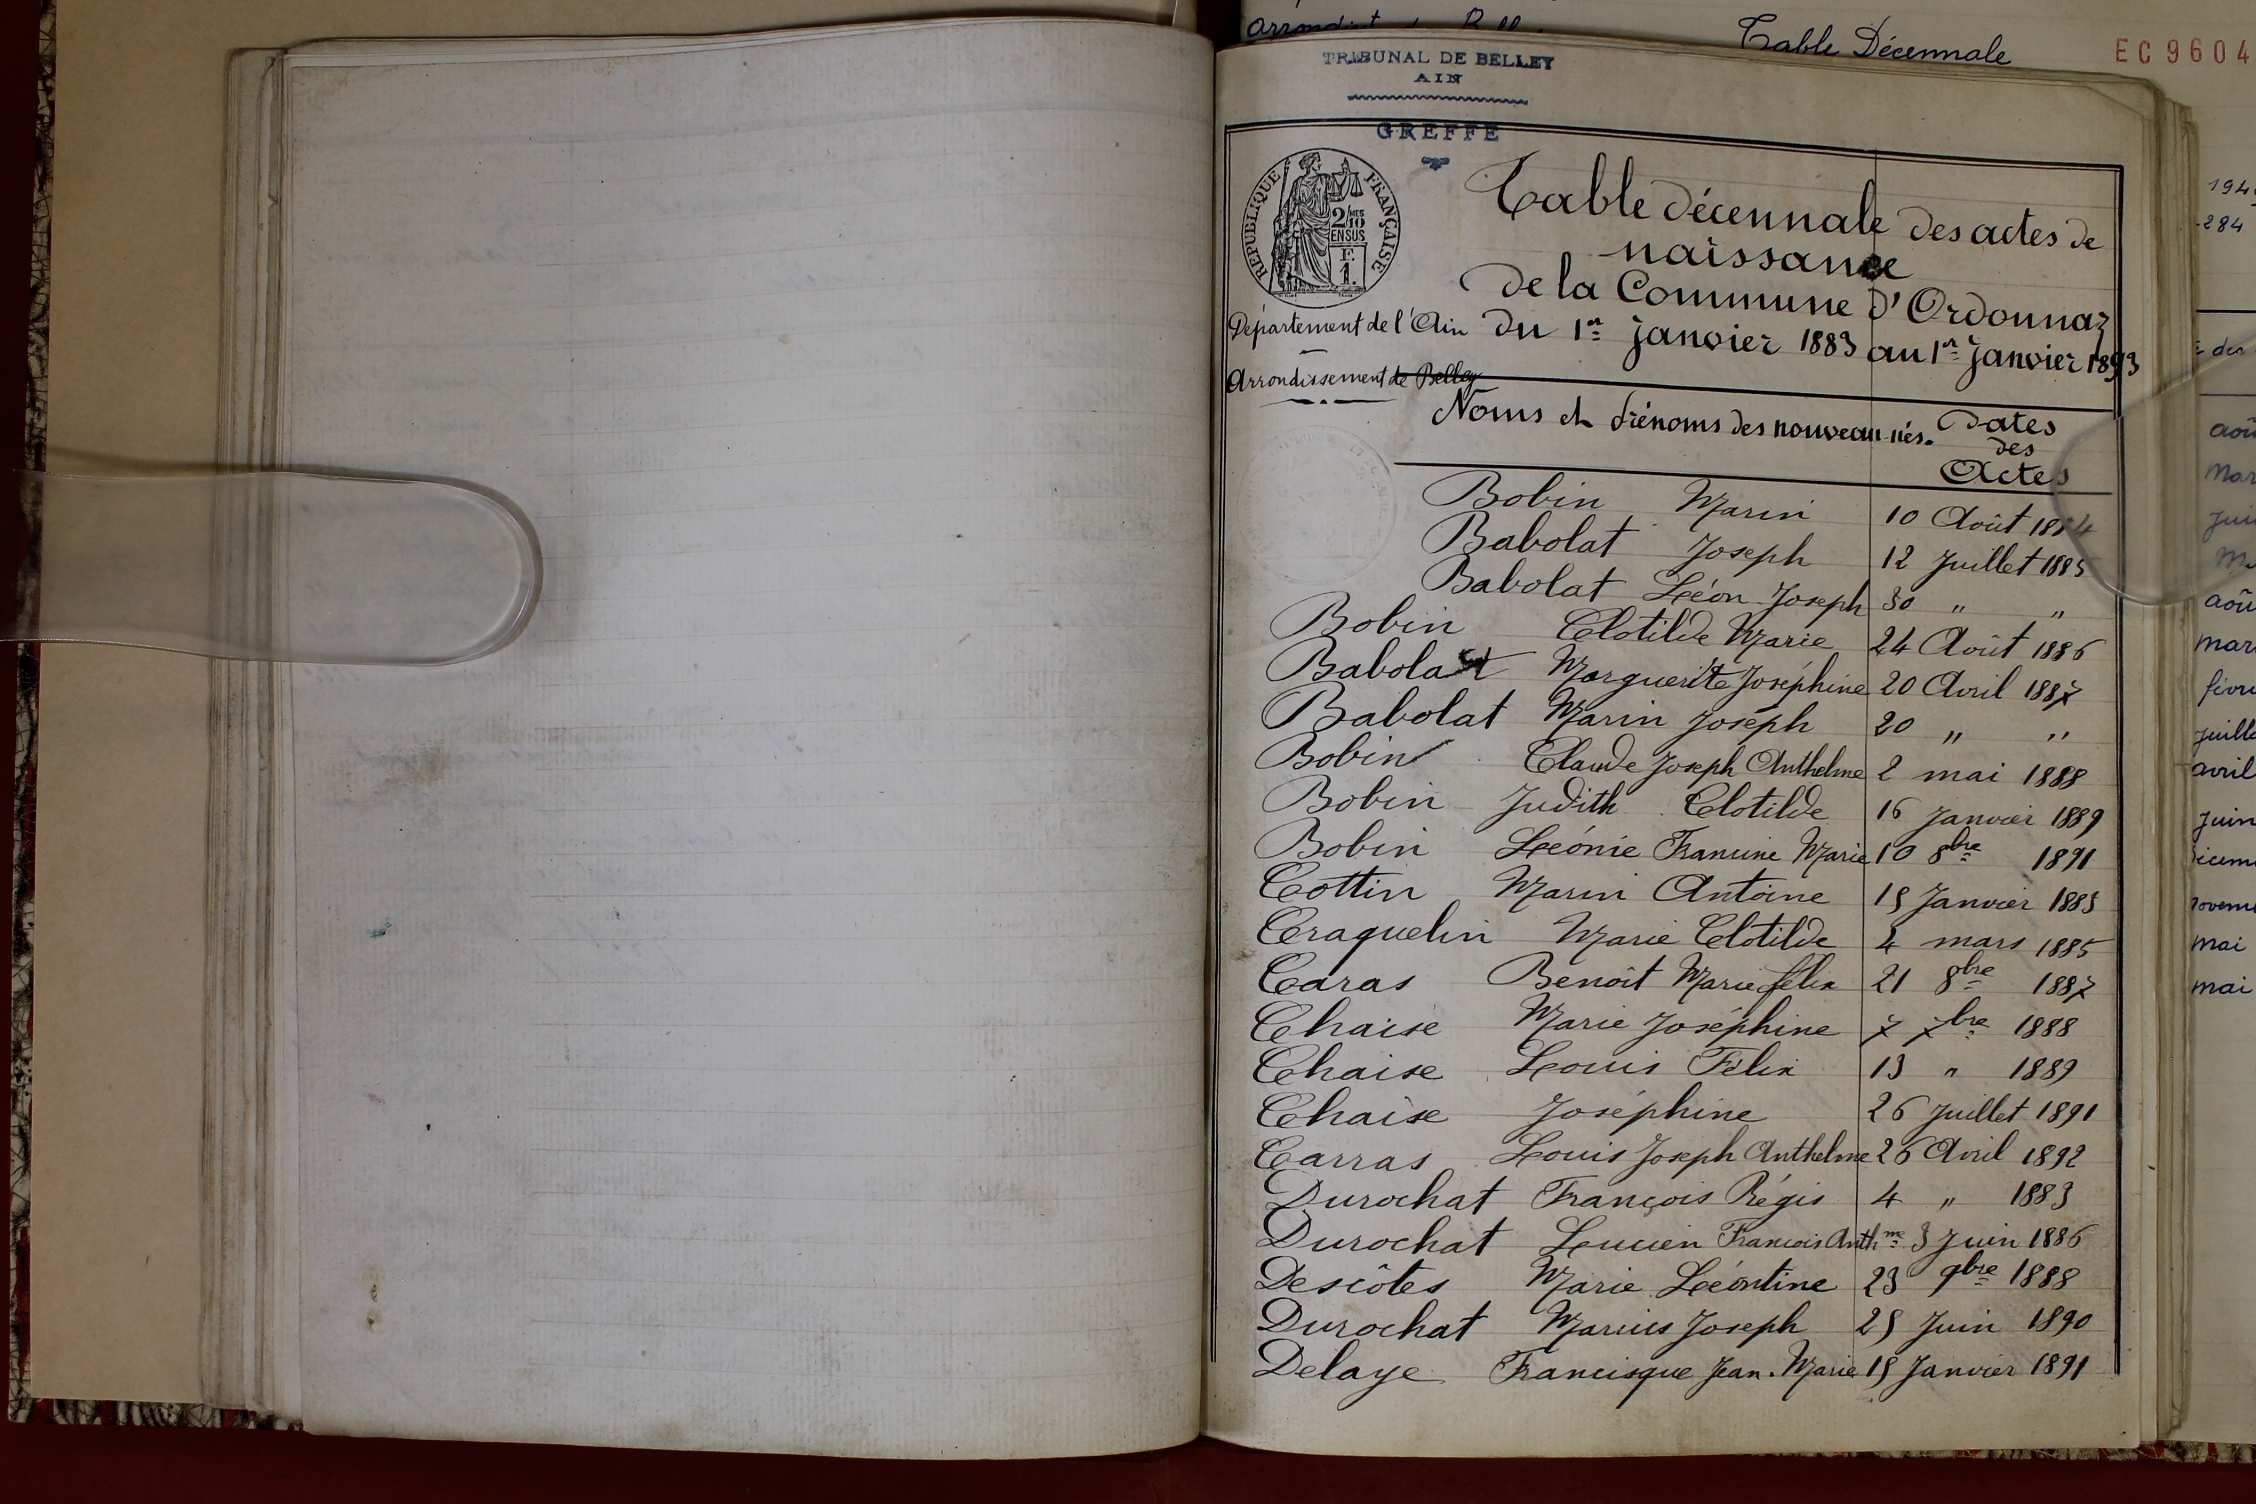 Table Décennale
EC 9604
TRIBUNAL DE BELLEY
AIN
GREFFE
REPUBLIQUE FRANÇAISE
2/10 MES
EN SUS
F.
1.
Table décennale des actes de
naissance
de la Commune d'Ordonnaz
du 1er janvier 1883 au 1er Janvier 1893
Département de l'Ain
Arrondissement de Belley
Noms et Prénoms des nouveau-nés.
Dates
des
Actes
Bobin Marin 10 Août 1884
Babolat Joseph 12 Juillet 1885
Babolat Léon Joseph 30 " "
Bobin Clotilde Marie 24 Août 1886
Babolat Marguerite Joséphine 20 Avril 1887
Babolat Marin Joseph 20 " "
Bobin Claude Joseph Anthelme 2 mai 1888
Bobin Judith Clotilde 16 Janvier 1889
Bobin Léonie Francine Marie 10 8bre 1891
Cottin Marin Antoine 15 Janvier 1885
Craquelin Marie Clotilde 4 mars 1885
Caras Benoît Marie félix 21 8bre 1887
Chaise Marie Joséphine 7 7bre 1888
Chaise Louis Félix 13 " 1889
Chaise Joséphine 26 Juillet 1891
Carras Louis Joseph Anthelme 26 Avril 1892
Durochat François Régis 4 " 1883
Durochat Lucien François Anthme 3 Juin 1886
Descôtes Marie Léontine 23 9bre 1888
Durochat Marius Joseph 25 Juin 1890
Delaye Francisque Jean-Marie 15 Janvier 1891
284
des
mai
mai